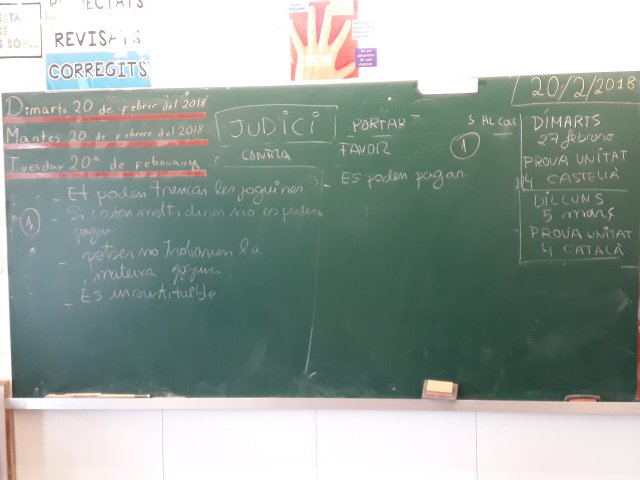 REVISATS
CORREGITS
20/2/2018
Dimarts 20 de Febrer del 2018
Martes 20 de Febrero del 2018
Tuesday 20th of February
JUDICI
PORTAR
S AL COLE
CONTRA
FAVOR
1
DIMARTS
27 febrero
PROVA UNITAT
4 CASTELLÀ
DILLUNS
5 març
PROVA UNITAT
4 CATALÀ
- Et poden trencar les joguines
- Es poden pagar
1
- Si costen molt, diners no es poden
pagar
- potser no trobaven la
mateixa
- És insustituible